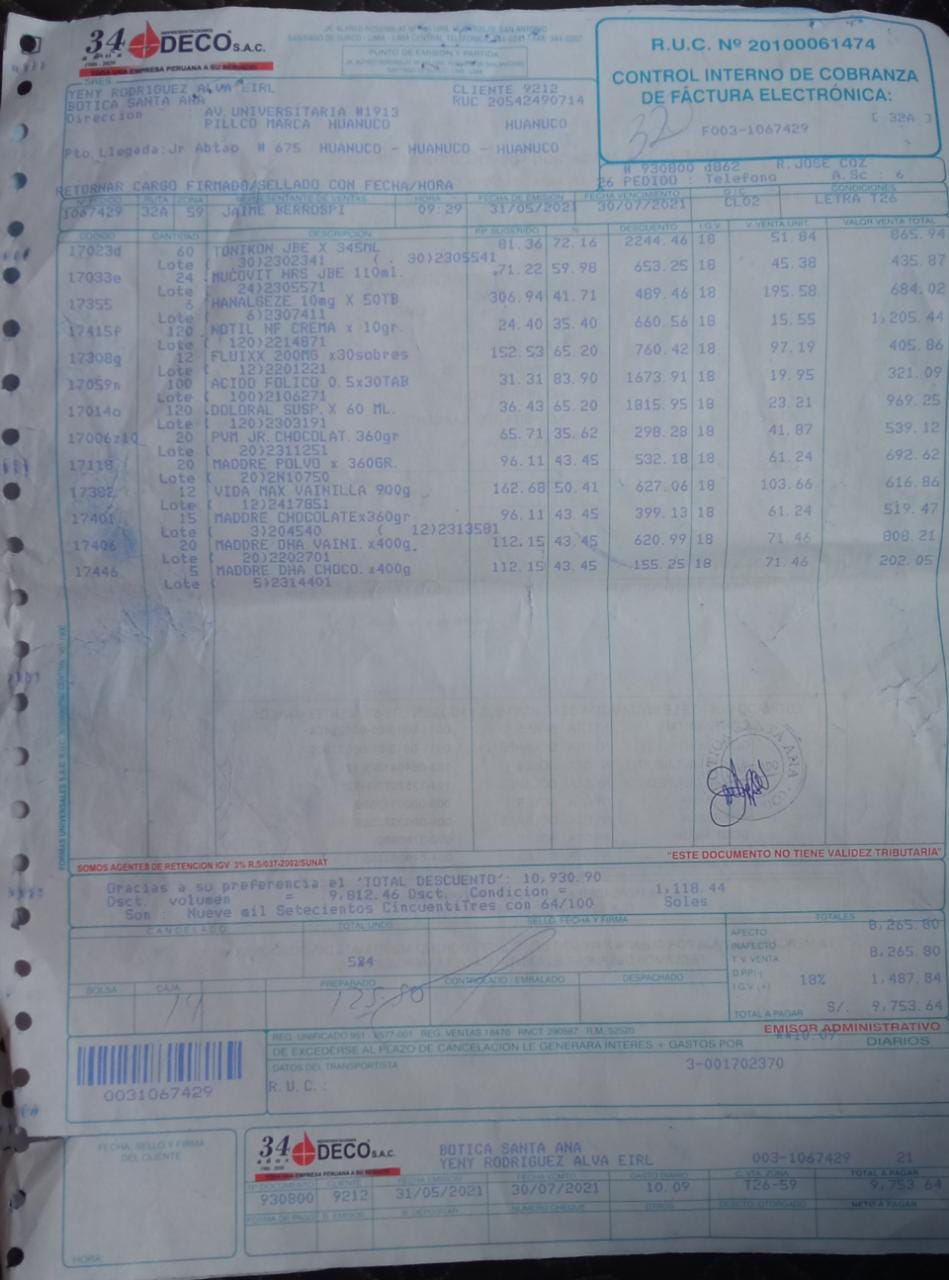 34 años DECO S.A.C.
1986 - 2020
TODA UNA EMPRESA PERUANA A SU SERVICIO
PUNTO DE EMISION Y PARTIDA
R.U.C. Nº 20100061474
CONTROL INTERNO DE COBRANZA
DE FACTURA ELECTRÓNICA:
[ 32A ]
32
F003-1067429
SRES
YENY RODRIGUEZ ALVA EIRL CLIENTE 9212
BOTICA SANTA ANA RUC 20542490714
Direccion AV.UNIVERSITARIA #1913
PILLCO MARCA HUANUCO HUANUCO
Pto Llegada:Jr Abtao # 675 HUANUCO - HUANUCO - HUANUCO
# 930800 d862 R.JOSE COZ
26 PEDIDO : Telefono A.Sc : 6
RETORNAR CARGO FIRMADO/SELLADO CON FECHA/HORA
RUTA ZONA REPRESENTANTE DE VENTAS HORA FECHA DE EMISION FECHA VENCIMIENTO O/C CONDICIONES
1067429 32A 59 JAIME BERROSPI 09:29 31/05/2021 30/07/2021 CL02 LETRA T26
CODIGO CANTIDAD DESCRIPCION P.P. SUGERIDO % DESCUENTO I.G.V. V.VENTA UNIT. VALOR VENTA TOTAL
17023d 60 TONIKON JBE X 345ML 81.36 72.16 2244.46 18 51.84 865.94
Lote ( 30)2302341 ( . 30)2305541
17033e 24 MUCOVIT HRS JBE 110ml. 71.22 59.98 653.25 18 45.38 435.87
Lote ( 24)2305571
17355 6 HANALGEZE 10mg X 50TB 306.94 41.71 489.46 18 195.58 684.02
Lote ( 6)2307411
17415f 120 NOTIL NF CREMA x 10gr. 24.40 35.40 660.56 18 15.55 1,205.44
Lote ( 120)2214871
17308g 12 FLUIXX 200MG x30sobres 152.53 65.20 760.42 18 97.19 405.86
Lote ( 12)2201221
17059n 100 ACIDO FOLICO 0.5x30TAB 31.31 83.90 1673.91 18 19.95 321.09
Lote ( 100)2106271
17014o 120 DOLORAL SUSP.X 60 ML. 36.43 65.20 1815.95 18 23.21 969.25
Lote ( 120)2303191
20 PVM JR.CHOCOLAT.360gr 65.71 35.62 298.28 18 41.87 539.12
Lote ( 20)2311251
17118 20 MADDRE POLVO x 360GR. 96.11 43.45 532.18 18 61.24 692.62
Lote ( 20)2N10750
17382 12 VIDA MAX VAINILLA 900g 162.68 50.41 627.06 18 103.66 616.86
Lote ( 12)2417851
17401 15 MADDRE CHOCOLATEx360gr 96.11 43.45 399.13 18 61.24 519.47
Lote ( 3)204540 ( 12)2313581
17406 20 MADDRE DHA VAINI.x400g. 112.15 43.45 620.99 18 71.46 808.21
Lote ( 20)2202701
17446 5 MADDRE DHA CHOCO.x400g 112.15 43.45 155.25 18 71.46 202.05
Lote ( 5)2314401
BOTICA SANTA ANA
SOMOS AGENTES DE RETENCION IGV 3% R.S/037-2002/SUNAT
"ESTE DOCUMENTO NO TIENE VALIDEZ TRIBUTARIA"
Gracias a su preferencia el 'TOTAL DESCUENTO': 10,930.90
Dsct. volumen = 9,812.46 Dsct. Condicion = 1,118.44
Son : Nueve mil Setecientos CincuentiTres con 64/100 Soles
CANCELADO TOTAL UNDS SELLO, FECHA Y FIRMA TOTALES
584
AFECTO 8,265.80
INAFECTO
T.V. VENTA 8,265.80
D.P.P.(-)
I.G.V. (+) 18% 1,487.84
TOTAL A PAGAR S/. 9,753.64
BOLSA CAJA PREPARADO CONTROLADO / EMBALADO DESPACHADO
14
EMISOR ADMINISTRATIVO
DE EXCEDERSE AL PLAZO DE CANCELACION LE GENERARA INTERES + GASTOS POR DIARIOS
DATOS DEL TRANSPORTISTA 3-001702370
R.U.C.:
0031067429
FECHA, SELLO Y FIRMA
DEL CLIENTE
HORA:
34 años DECO S.A.C.
TODA UNA EMPRESA PERUANA A SU SERVICIO
BOTICA SANTA ANA 003-1067429 21
YENY RODRIGUEZ ALVA EIRL
CLIENTE FECHA EMISION FECHA VCMTO VTA ZONA TOTAL A PAGAR
930800 9212 31/05/2021 30/07/2021 10.09 T26-59 9,753.64
FORMA DE PAGO B. EMISOR # DEPOSITAR NUMERO CHEQUE OTROS DSCTO. OTORGADO NETO A PAGAR